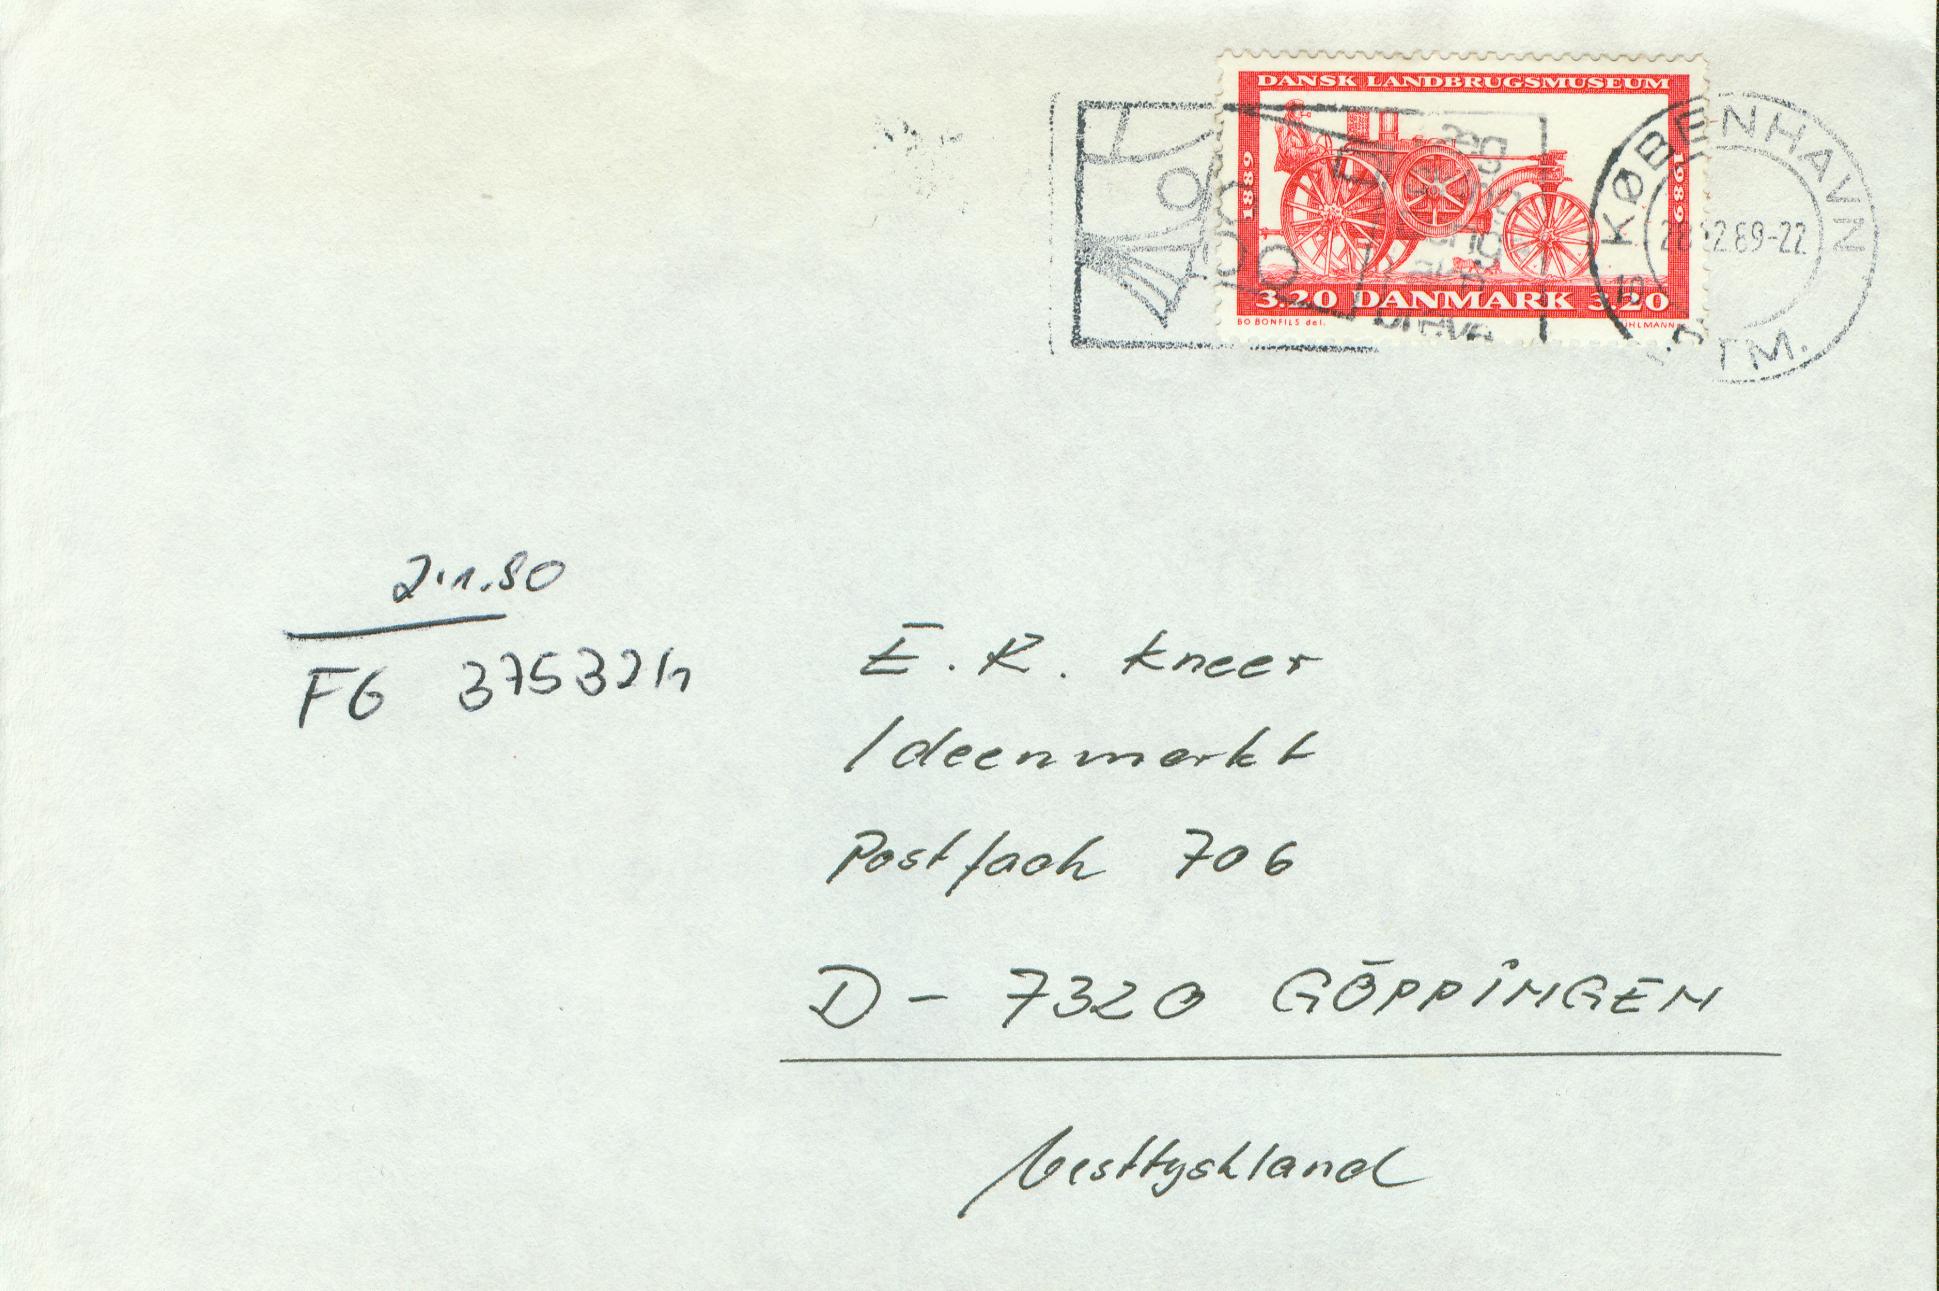 DANSK LANDBRUGSMUSEUM
1889
1989
3.20 DANMARK 3.20
BO BONFILS del.
KØBENHAVN
2.89-22
TM.
2.1.90
FG 37532h
E. R. Kneer
Ideenmarkt
Postfach 706
D - 7320 GÖPPINGEN
Vesttyskland